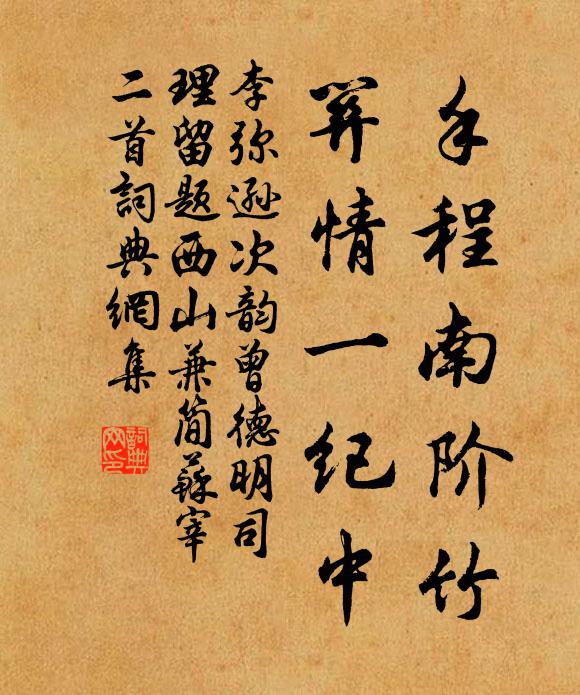 手程南阶竹
情一纪中
李弥遜次韵曾德明司
理留题西山兼简蘇宰
二首詞典網集
詞典
网印